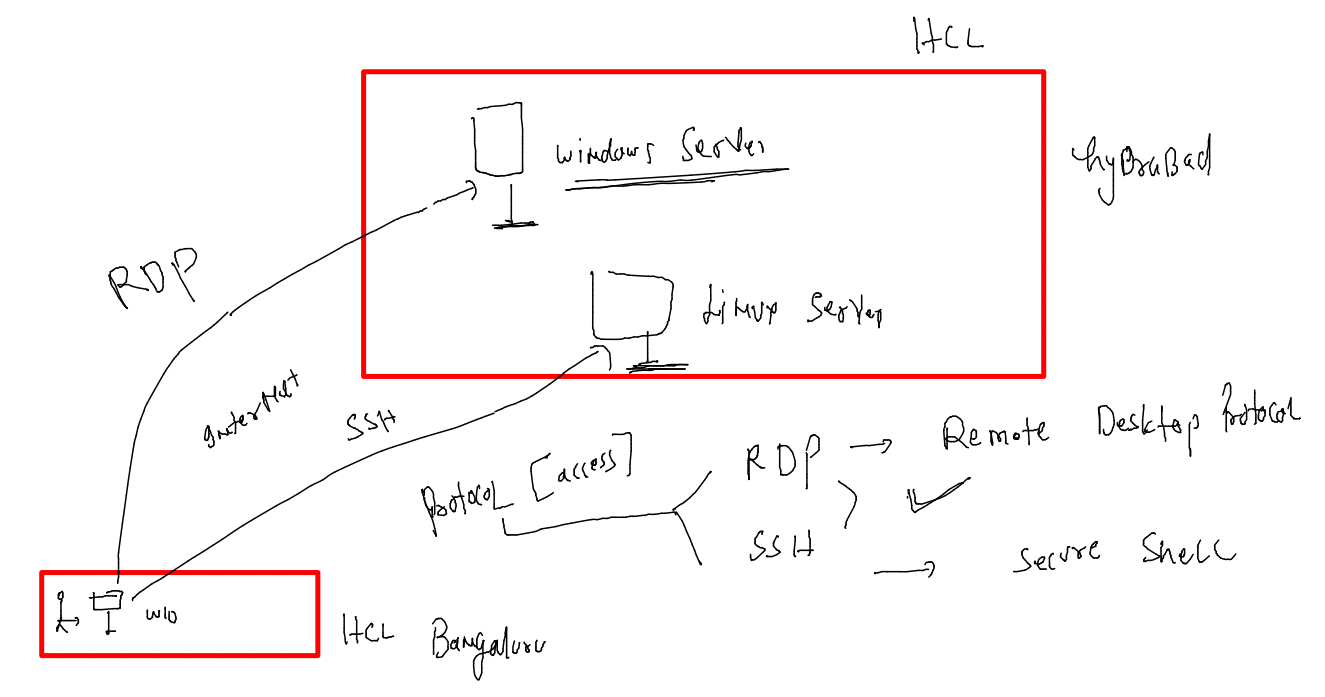 HCL
Windows Server
hyDraBad
RDP
Linux Server
Internet
SSH
Protocol [access]
RDP → Remote Desktop Protocol
SSH → Secure Shell
W10
HCL Bangaluru